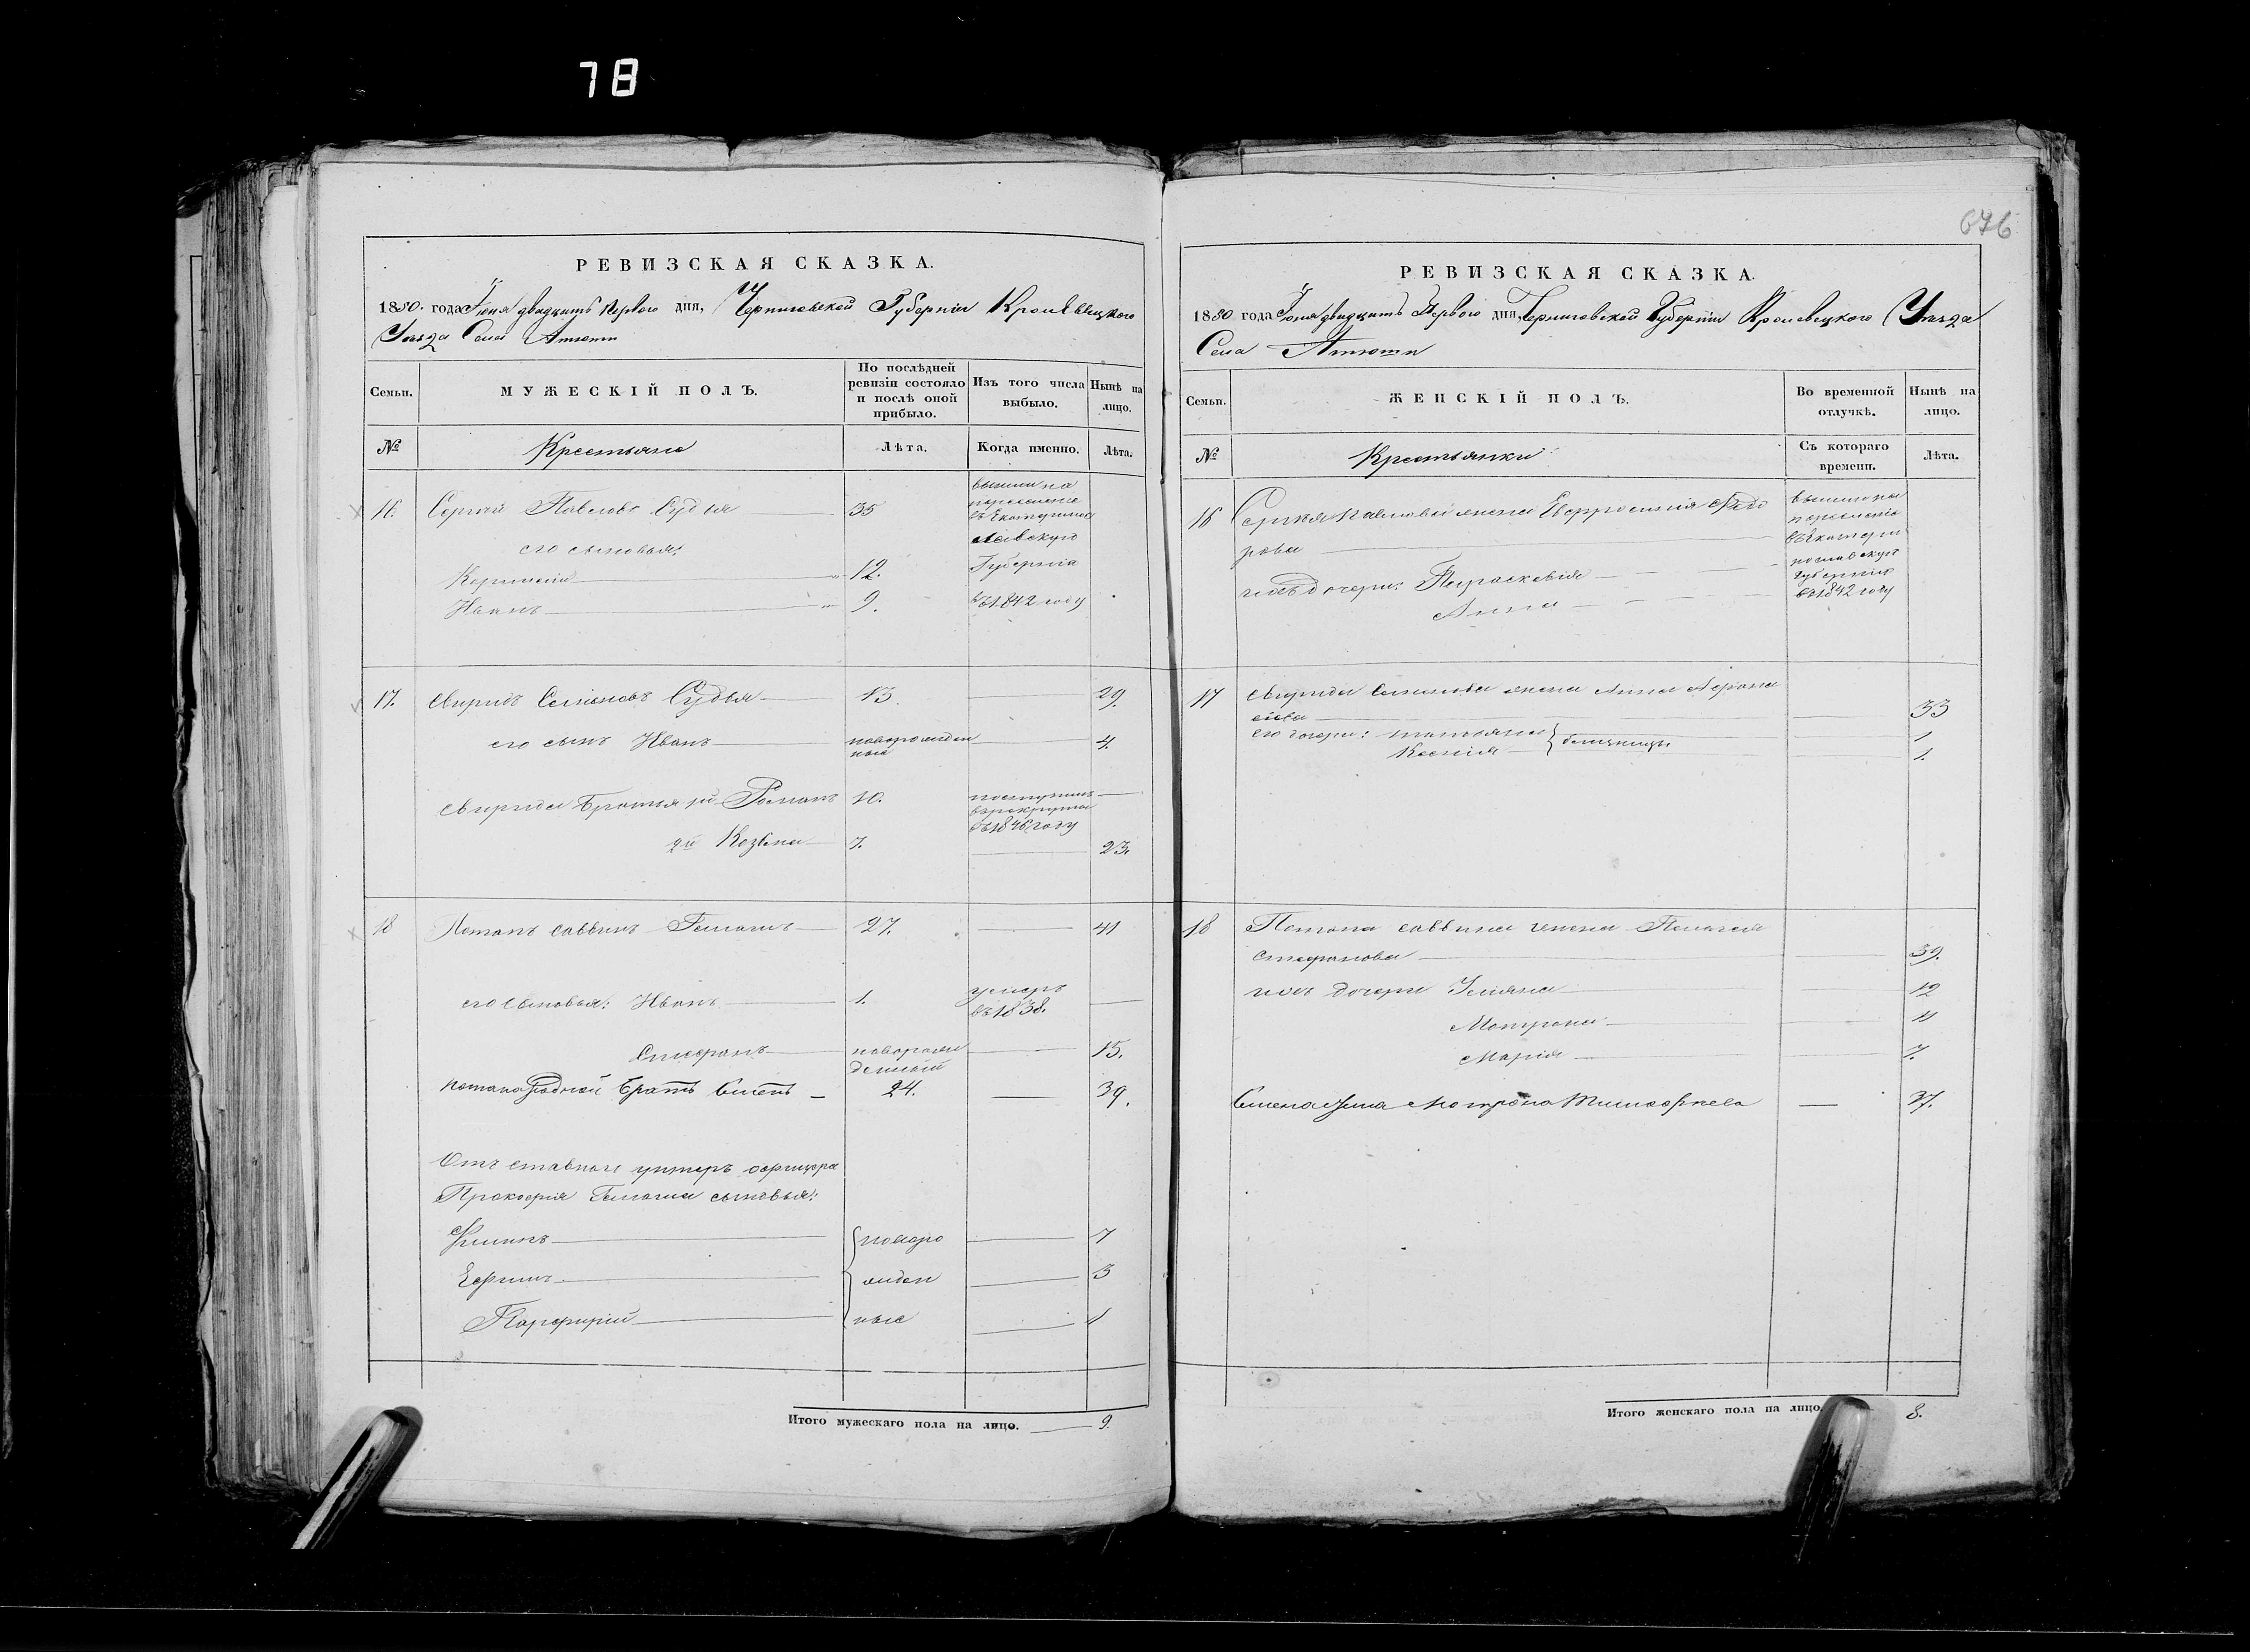 78
676
РЕВИЗСКАЯ СКАЗКА.
1850. года Іюня двадцать первого дня, Черниговской Губерніи Кролевецкого
Уезда Села Атюши
Семьи.
МУЖЕСКІЙ ПОЛЪ.
По послѣдней ревизіи состояло и послѣ оной прибыло.
Изъ того числа выбыло.
Нынѣ на лицо.
№
Крестьяне
Лѣта.
Когда именно.
Лѣта.
16. Сергей Павловъ Судья 35
вышли на
переселение
въ Екатерино
славскую
Губернію
въ 1842 году
его сыновья:
Корнилій 12.
Иванъ 9.
17. Свиридъ Семеновъ Судья 13. 29.
его сынъ Иванъ новорожден
ные 4.
Свирида братья 1й Романъ 10.
поступилъ
въ рекруты
въ 1846 году
2й Козьма 7. 23.
18 Потапъ Саввинъ 27. 41
его сыновья: Иванъ 1. умеръ
въ 1838.
Стефанъ новорож
денный 15.
Потапа родной братъ Семенъ 24. 39.
Отъ ставного унтеръ офицера
Прокофія сыновья:
новоро 7
Ефимъ жден 3
Порфирій ные 1
Итого мужескаго пола на лицо. 9.
РЕВИЗСКАЯ СКАЗКА.
1850 года Іюня двадцать Первого дня, Черниговской Губерніи Кролевецкого Уезда
Села Атюши
Семьи.
ЖЕНСКІЙ ПОЛЪ.
Во временной отлучкѣ.
Нынѣ на лицо.
№
Крестьянки
Съ котораго времени.
Лѣта.
16 Сергея Павлова жена Евфросинія Федо
рова
вышли на
переселеніе
въ Екатери
нославскую
Губернію
въ 1842 году
ихъ дочери: Параскевія
Анна
17 Свирида Семенова жена Анна Афана
сіева 33
его дочери: Татьяна 1
Ксенія близницы 1.
18 Потапа Саввина жена Пелагея
Стефанова 39.
ихъ дочери Уліяна 12
Мотрона 11
Марія 7.
Семена жена Мотрона Тимофеева 37.
Итого женскаго пола на лицо. 8.